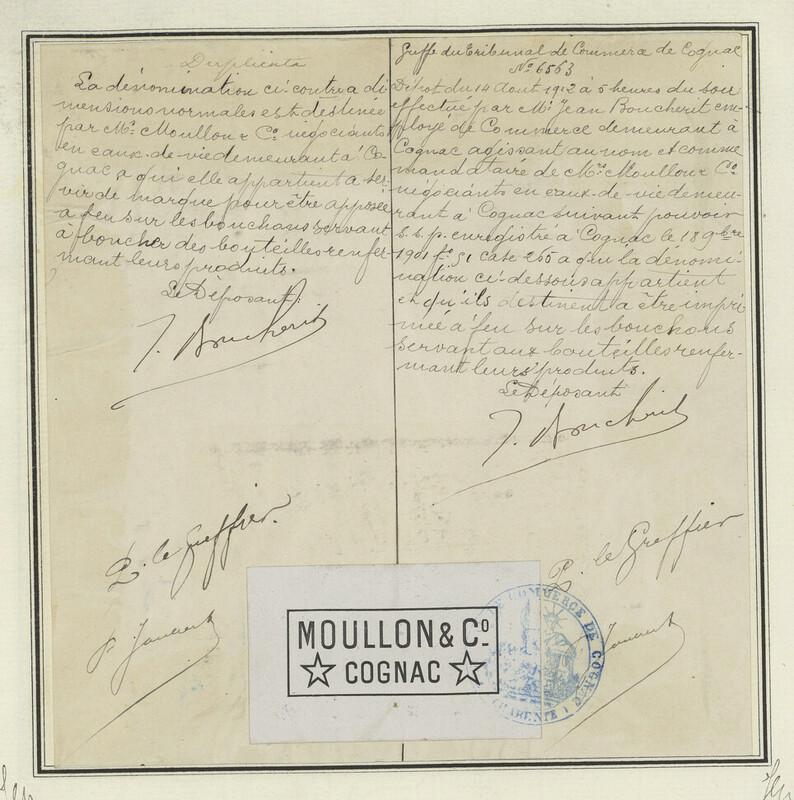 Duplicata
La dénomination ci-contre a di
mensions normales est destinée
par Mrs. Moullon & Co. négociants
en eaux-de-vie demeurant à Co-
gnac, a qui elle appartient à ser-
vir de marque pour être apposée
à feu sur les bouchons servant
à boucher des bouteilles renfer-
mant leurs produits.
Le Déposant
J. Boucherit
P. le Greffier
Greffe du Tribunal de Commerce de Cognac
No. 6563
Dépot du 14 Aout 1912 à 5 heures du soir
effectué par Mr. Jean Boucherit em-
ployé de Commerce demeurant à
Cognac agissant au nom et comme
mandataire de Mrs. Moullon & Co.
négociants en eaux-de-vie demeu-
rant à Cognac suivant pouvoir
s.s.p. enregistré à Cognac le 18 9bre
1901 fo. 51 case 265 a qui la dénomi-
nation ci-dessous appartient
et qu'ils destinent à être impri
mée à feu sur les bouchons
servant aux bouteilles renfer-
mant leurs produits.
Le Déposant
J. Boucherit
P. le Greffier
MOULLON & Co
COGNAC
COMMERCE DE COGNAC
CHARENTE